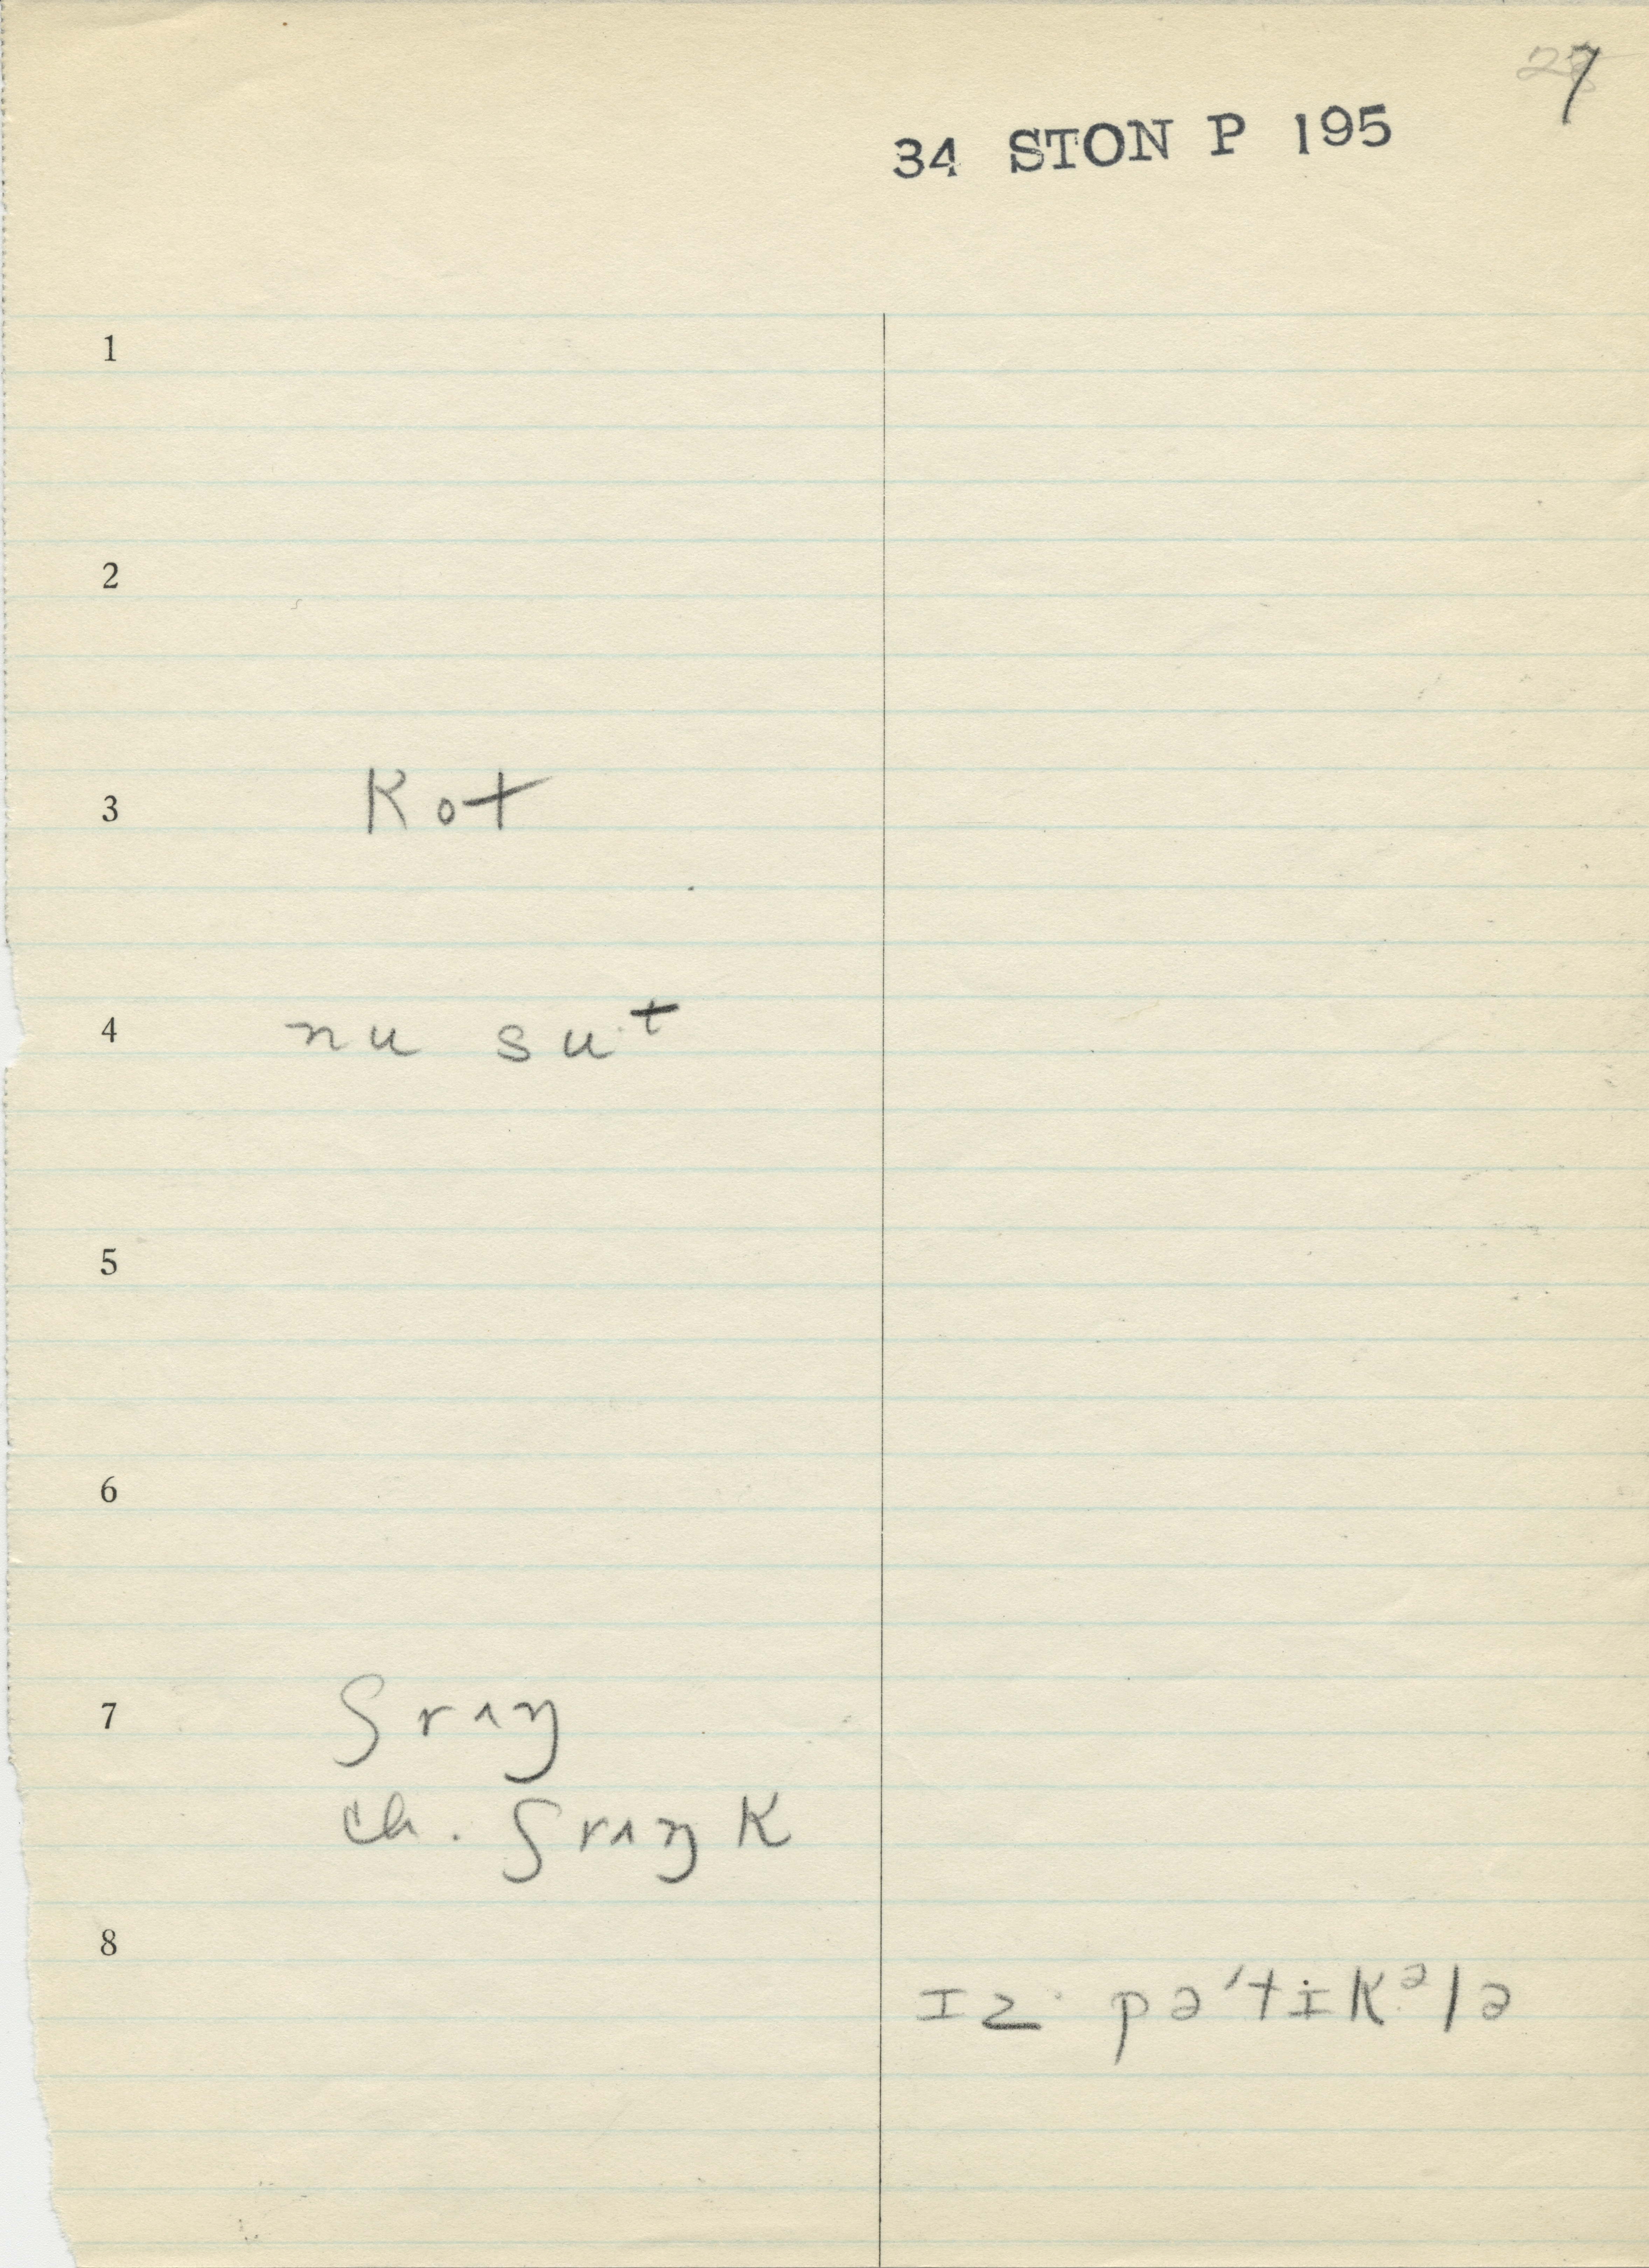 7
34 STON P 195
1
2
3 kot
4 nu suᵗ
5
6
7 ʃrʌŋ
ch. ʃrʌŋk
8
ɪz pə'tɨkᵊlə